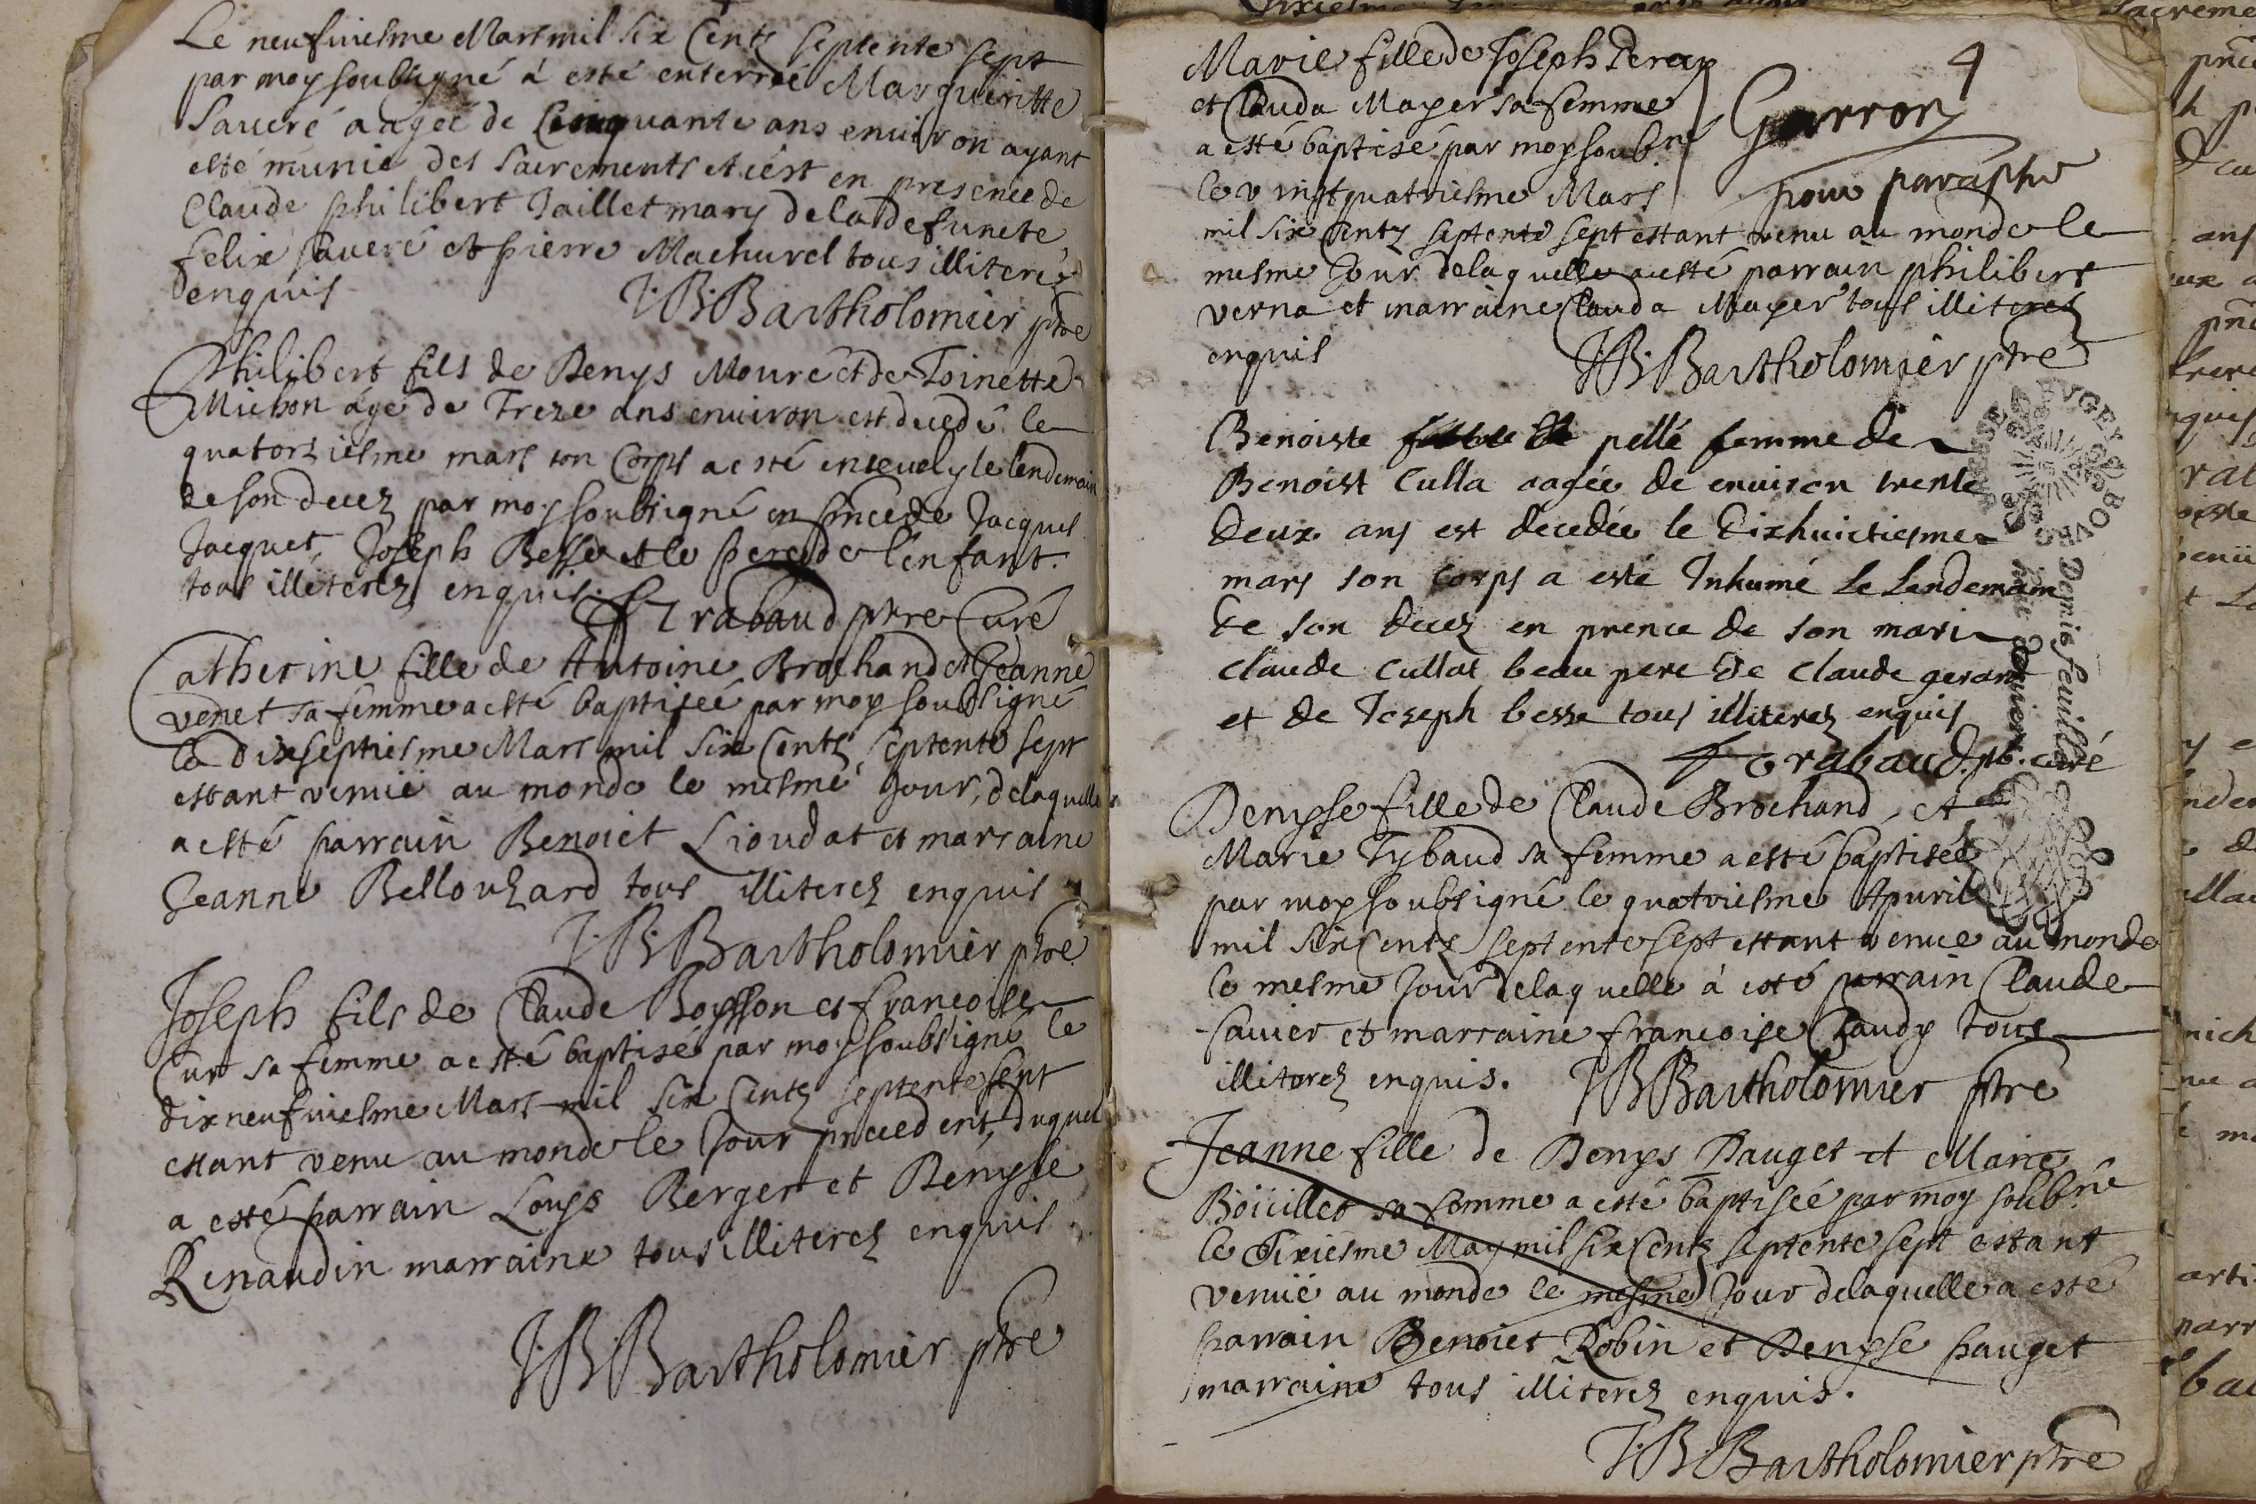 Le neufviesme Mars mil six Centz septente sept
par moy soubsigné à esté enterreé Margueritte
Saueré aagée de Cinquante ans enuiron ayant
esté munie des sacrements et cest en presence de
Claude philibert Jaillet mary de la defuncte
felix saueré et pierre Machurel tous illiterés
enquis
J: B: Bartholomier ptre
Philibert fils de Denys Mouré et de Toinette
Michon âgé de Treze ans enuiron est decedé le
quatorziesme mars son Corps a esté enseuely le lendemain
de son decez par moy soubsigné en pnce de Jacques
Jacquet, Joseph Besse et le pere de l'enfant.
tous illiterez enquis
Trabaud ptre Curé
Catherine fille de Antoine Brochand et Jeanne
venet sa femme a esté baptiseé par moy soubsigné
le dixseptiesme Mars mil six Centz septente sept
estant venüe au monde le mesme Jour, delaquelle
a esté parrain Benoict Lioudat et marraine
Jeanne Bellouzard tous illiterez enquis
J: B: Bartholomier ptre
Joseph fils de Claude Boysson et francoise
Cur sa femme a esté baptisé par moy soubsigné le
dixneufuiesme Mars mil six Centz septente sept
estant venu au monde le Jour precedent, duquel
a esté parrain Louys Berger et Denyse
Renaudin marraine tous illiterez enquis
J: B: Bartholomier ptre
4
Marie fille de Joseph
et Clauda Mayer sa femme
a esté baptisé par moy soub.né
le vingtquatriesme Mars
Garron
pour paraphe
mil six Centz septente sept estant venu au monde le
mesme Jour delaquelle a esté parrain philibert
verna et marraine Clauda Mayer tous illiterez
enquis
J: B: Bartholomier ptre
Benoiste pellé femme de
Benoist Culla aagée de enuiron trente
deux ans est decedée le dixhuictiesme
mars son corps a esté Inhumé le lendemain
de son decez en prence de son mari
claude cullat beau pere de claude gerard
et de Joseph besse tous illiterez enquis
Trabaud pb. curé
BRESSE BVGEY
Demie feuille
huit Deniers
Denysse fille de Claude Brochand, et
Marie Tybaud sa femme a esté baptisée
par moy soubsigné le quatriesme Apuril
mil six Centz septente sept estant venue au monde
le mesme Jour delaquelle à esté parrain Claude
sauier et marraine francoise Claudy tous
illiterez enquis. J B Bartholomier ptre
Jeanne fille de Denys Pauget et Marie
Boüillet sa femme a esté baptiseé par moy soub.né
le Sixiesme May mil six Centz septente sept estant
venüe au monde le mesme Jour delaquelle a esté
parrain Benoict Robin et Denyse pauget
marraine tous illiterez enquis.
J: B: Bartholomier ptre